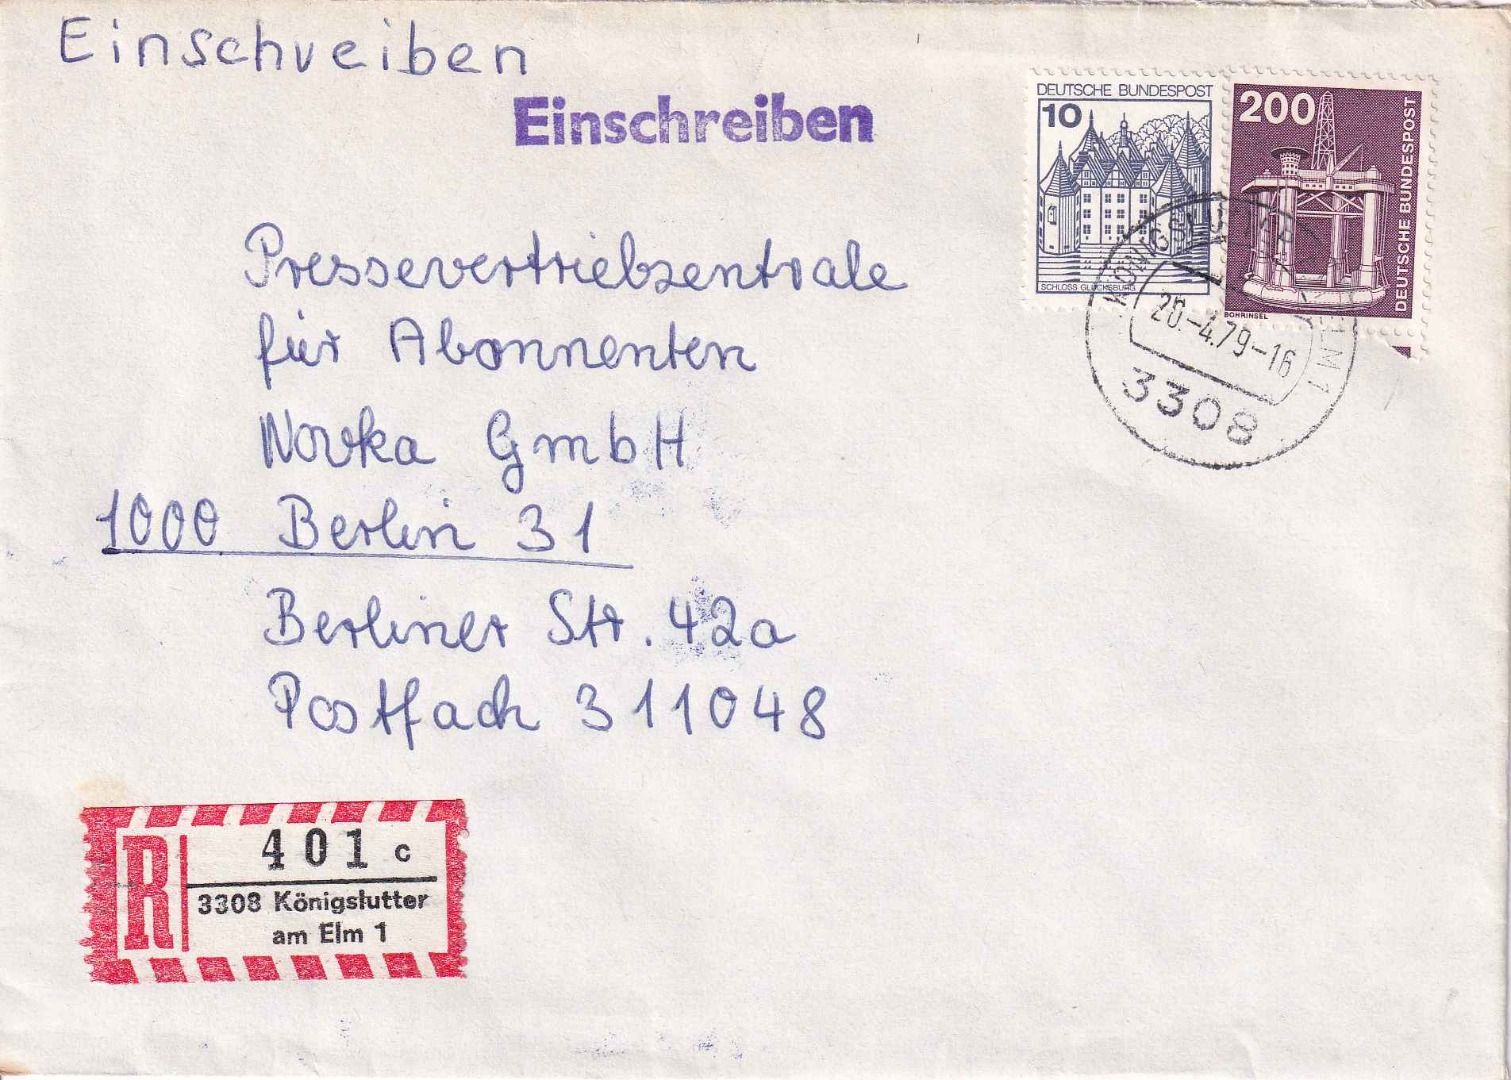 Einschreiben
Einschreiben
DEUTSCHE BUNDESPOST
10
SCHLOSS GLÜCKSBURG
200
DEUTSCHE BUNDESPOST
BOHRINSEL
20.-4.79-16
3308
Pressevertriebszentrale
für Abonnenten
GmbH
1000 Berlin 31
Berliner Str. 42a
Postfach 311048
R
401 c
3308 Königslutter
am Elm 1